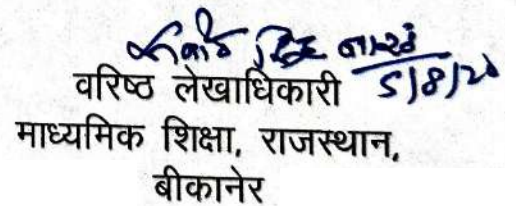 5/8/20
वरिष्ठ लेखाधिकारी
माध्यमिक शिक्षा, राजस्थान,
बीकानेर